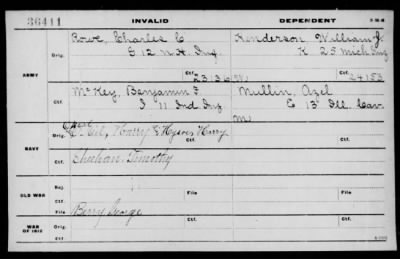 36411 INVALID DEPENDENT
Rowe, Charles C Henderson William J.
Orig. E 12 N.H. Inf K 25 Mich Inf
Ctf. 23136 Ctf. 24153
ARMY
McKey, Benjamin F Mullin, Azel
Orig. I 11 Ind Inf E 13 Ill. Cav.
Ctf. m
Harry Hysore, Harry
Orig. Ctf.
NAVY
Sheehan, Timothy
Orig. Ctf.
OLD WAR Rej. File File
Ctf.
WAR OF 1812 File Berry George
Ctf. Ctf.